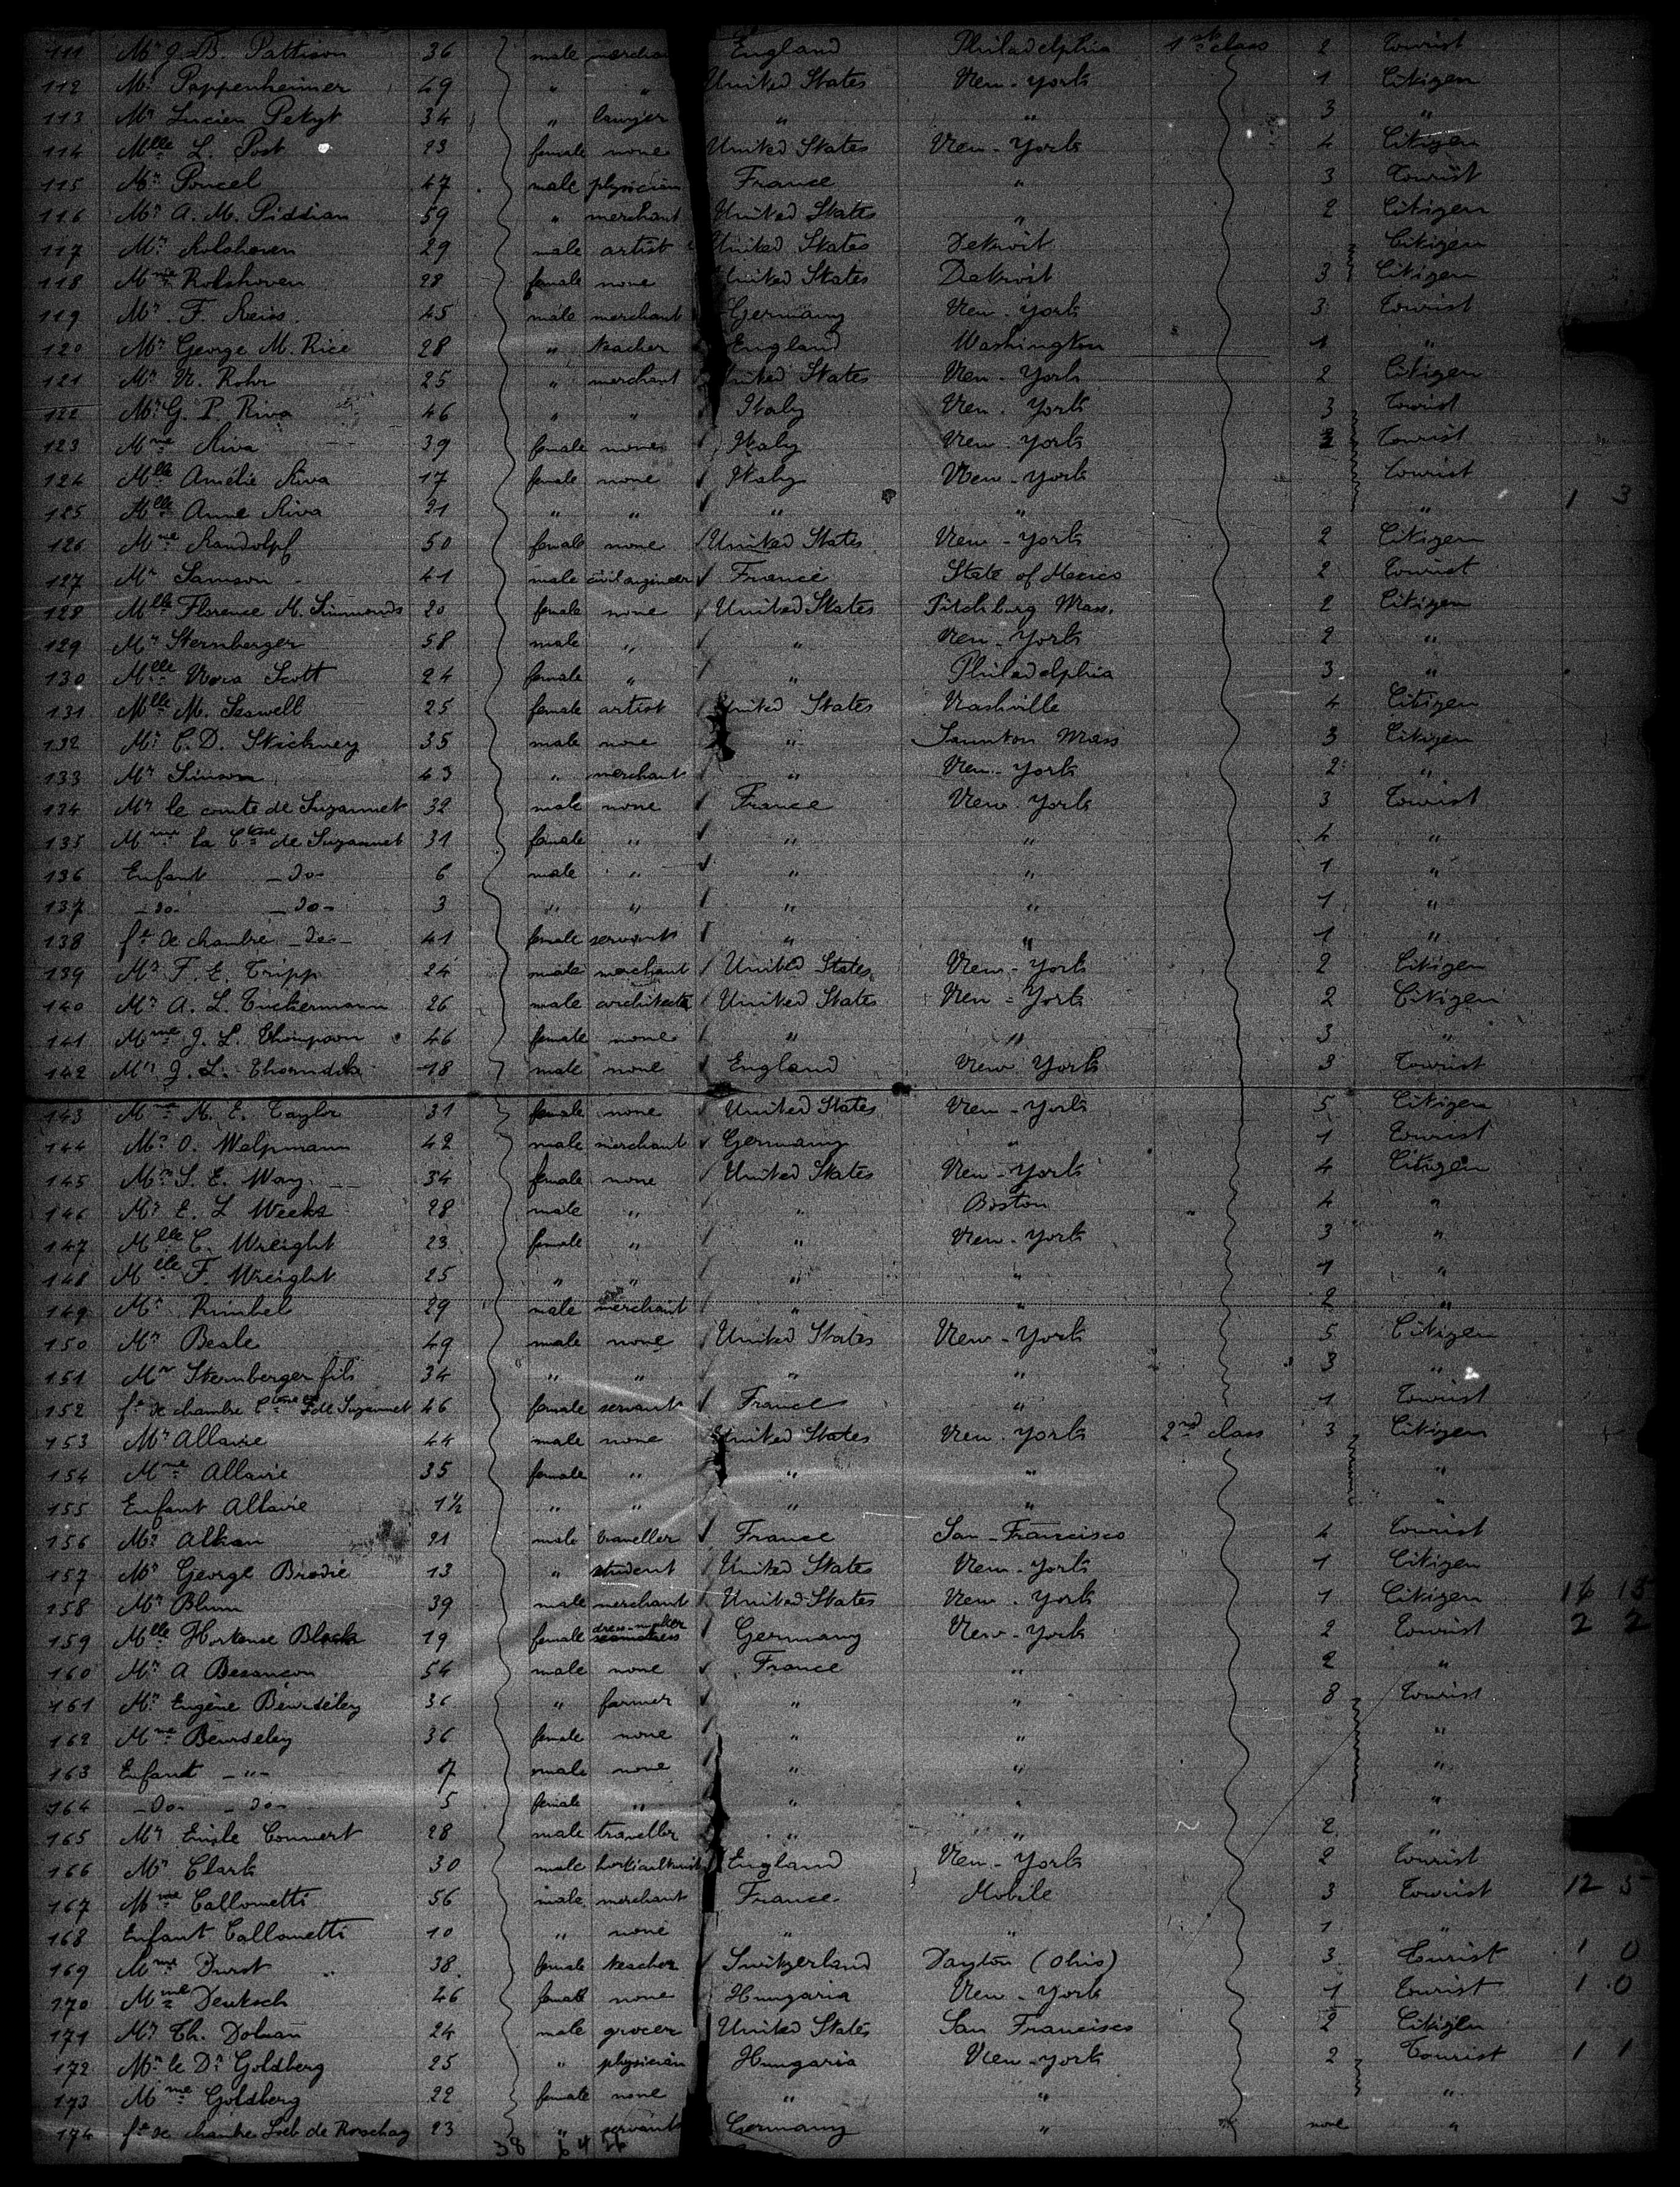 111 Mr J. B. Pattison 36 male merchan England Philadelphia 1st class 2 Tourist
112 Mr Pappenheimer 49 " " United States New-York 1 Citizen
113 Mr Lucien Petyt 34 " lawyer " " 3 "
114 Mlle L. Post 23 female none United States New-York 4 Citizen
115 Mr Poncel 47 male physician France " 3 Tourist
116 Mr A. M. Piddian 59 " merchant United States " 2 Citizen
117 Mr Rolshoven 29 male artist United States Detroit Citizen
118 Mme Rolshoven 28 female none United States Detroit 3 Citizen
119 Mr F. Reiss 45 male merchant Germany New-York 3 Tourist
120 Mr George M. Rice 28 " teacher England Washington 1 "
121 Mr N. Rohr 25 " merchant United States New-York 2 Citizen
122 Mr G. P. Riva 46 " " Italy New-York 3 Tourist
123 Mme Riva 39 female none Italy New-York 2 Tourist
124 Mlle Amélie Riva 17 female none Italy New-York Tourist
125 Mlle Anne Riva 21 " " " " " 1 3
126 Mme Randolpf 50 female none United States New-York 2 Citizen
127 Mr Samson 41 male civil engineer France State of Mexico 2 Tourist
128 Mlle Florence M. Simmonds 20 female none United States Fitchburg Mass. 2 Citizen
129 Mr Sternberger 58 male " " New-York 2 "
130 Mlle Nora Scott 24 female " " Philadelphia 3 "
131 Mlle M. Seawell 25 female artist United States Nashville 4 Citizen
132 Mr C. D. Stickney 35 male none " Taunton Mass 3 Citizen
133 Mr Simon 43 " merchant " New-York 2 "
134 Mr le comte de Suzannet 32 male none France New-York 3 Tourist
135 Mme la Ctesse de Suzannet 31 female " " " 4 "
136 Enfant -do- 6 male " " " 1 "
137 -do- -do- 3 " " " " 1 "
138 fe de chambre -do- 41 female servant " " 1 "
139 Mr F. E. Tripp 24 male merchant United States New-York 2 Citizen
140 Mr A. L. Tuckermann 26 male architecte United States New-York 2 Citizen
141 Mme J. L. Thompson 46 female none " " 3 "
142 Mr J. L. Thorndike 18 male none England New York 3 Tourist
143 Mme M. E. Taylor 31 female none United States New-York 5 Citizen
144 Mr O. Welpmann 42 male merchant Germany " 1 Tourist
145 Mme S. E. Way 34 female none United States New-York 4 Citizen
146 Mr E. L Weeks 28 male " " Boston 4 "
147 Mlle C. Wreight 23 female " " New-York 3 "
148 Mlle F. Wreight 25 " " " " 1 "
149 Mr Rimbel 29 male merchant " " 2 "
150 Mr Beale 49 male none United States New-York 5 Citizen
151 Mr Sternberger fils 34 " " " " 3 "
152 fe de chambre Ctesse de Suzannet 46 female servant France " 1 Tourist
153 Mr Allaire 44 male none United States New-York 2nd class 3 Citizen
154 Mme Allaire 35 female " " " "
155 Enfant Allaire 1½ " " " " "
156 Mr Alkan 21 male traveller France San-Francisco 4 Tourist
157 Mr George Bredié 13 " student United States New-York 1 Citizen
158 Mr Blum 39 male merchant United-States New-York 1 Citizen 16 15
159 Mlle Hortense Block 19 female dress-maker Germany New-York 2 Tourist 2 2
160 Mr A Besancon 54 male none France " 2 "
161 Mr Eugène Beurdeley 36 " farmer " " 8 Tourist
162 Mme Beurdeley 36 female none " " "
163 Enfant -"- 7 male none " " "
164 -do- -do- 5 female " " " "
165 Mr Emile Convert 28 male traveller " " 2 "
166 Mr Clark 30 male horticulturist England New-York 2 Tourist
167 Mme Callometti 56 male merchant France Mobile 3 Tourist 12 5
168 Enfant Callometti 10 " none " " 1 "
169 Mme Durst 38 female teacher Switzerland Dayton (Ohio) 3 Tourist 1 0
170 Mme Deutsch 46 female none Hungaria New-York 1 Tourist 1 0
171 Mr Th. Dolnan 24 male grocer United States San Francisco 2 Citizen
172 Mr le Dr Goldberg 25 " physician Hungaria New-york 2 Tourist 1 1
173 Mme Goldberg 22 female none " " "
174 fe de chambre Loeb de Rorschag 23 " servant Germany " none "
38 64 26